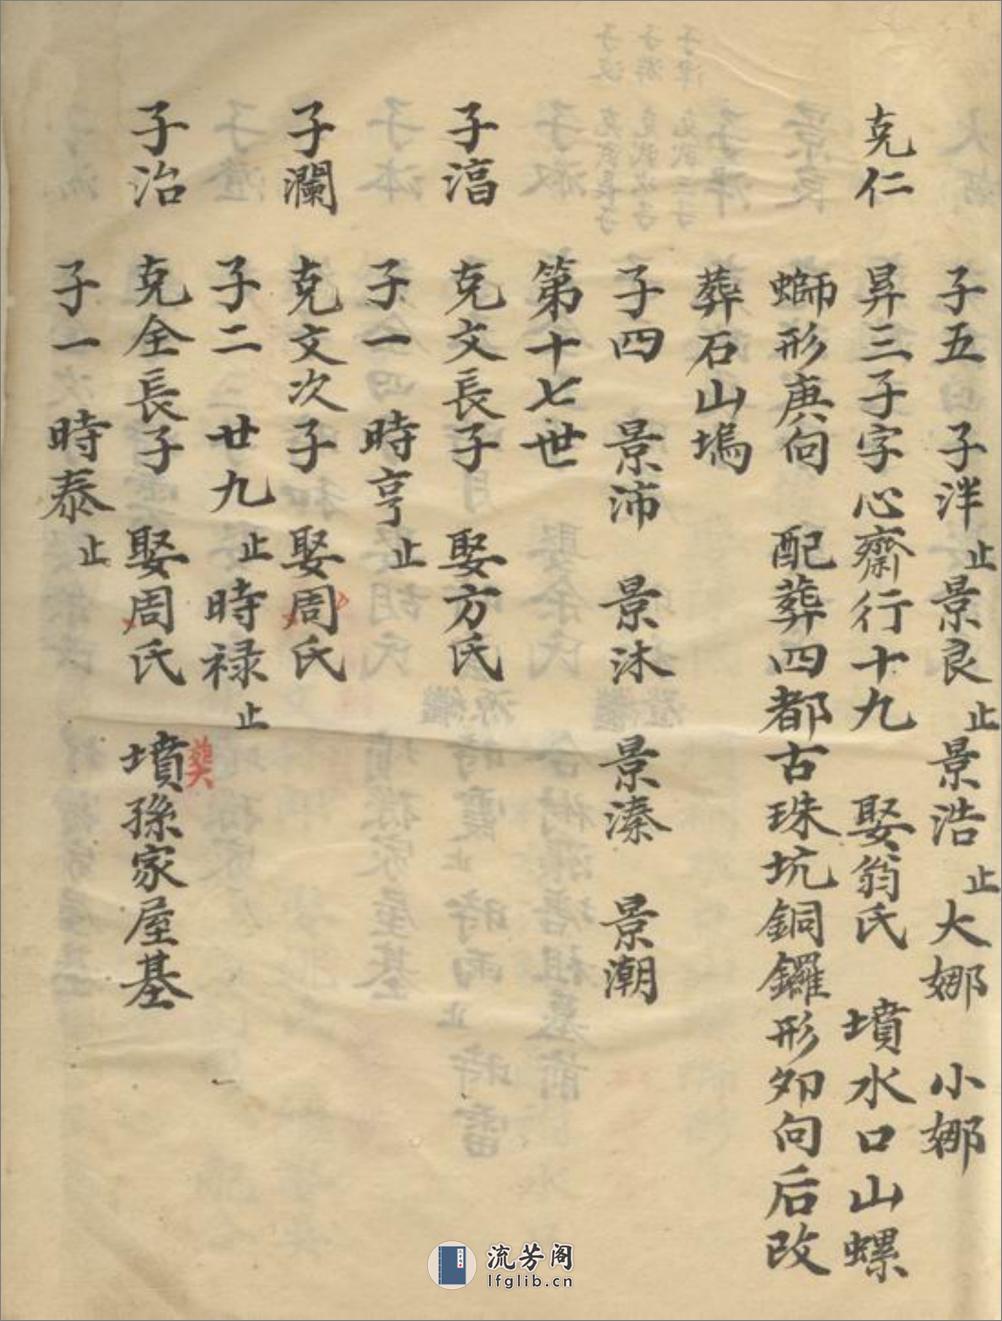 子五 子泮止 景良止 景浩止 大娜 小娜
克仁 昇三子字心齋行十九 娶翁氏 墳水口山螺
螄形庚向 配葬四都古珠坑銅鑼形夘向后改
葬石山塢
子四 景沛 景沐 景溱 景潮
第十七世
子湻 克文長子 娶方氏
子一 時亨止
子瀾 克文次子 娶周氏
子二 廿九止 時禄止
子治 克全長子 娶周氏 墳孫家屋基
龔
子一 時泰止
流芳阁
lfglib.cn